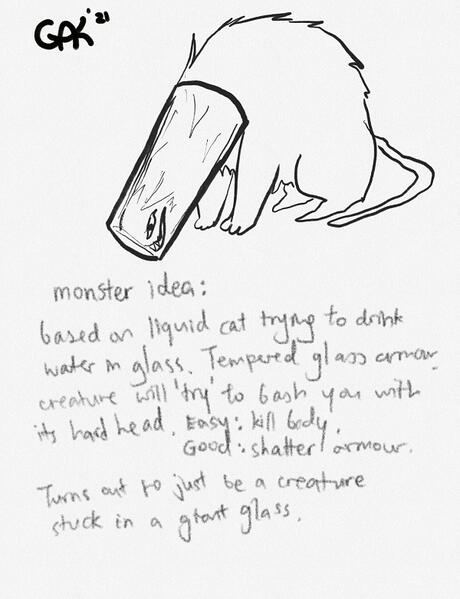 GAK '21
monster idea:
based on liquid cat trying to drink
water in glass. Tempered glass armour.
creature will 'try' to bash you with
its hard head. Easy: kill body.
Good: shatter armour.
Turns out to just be a creature
stuck in a giant glass.